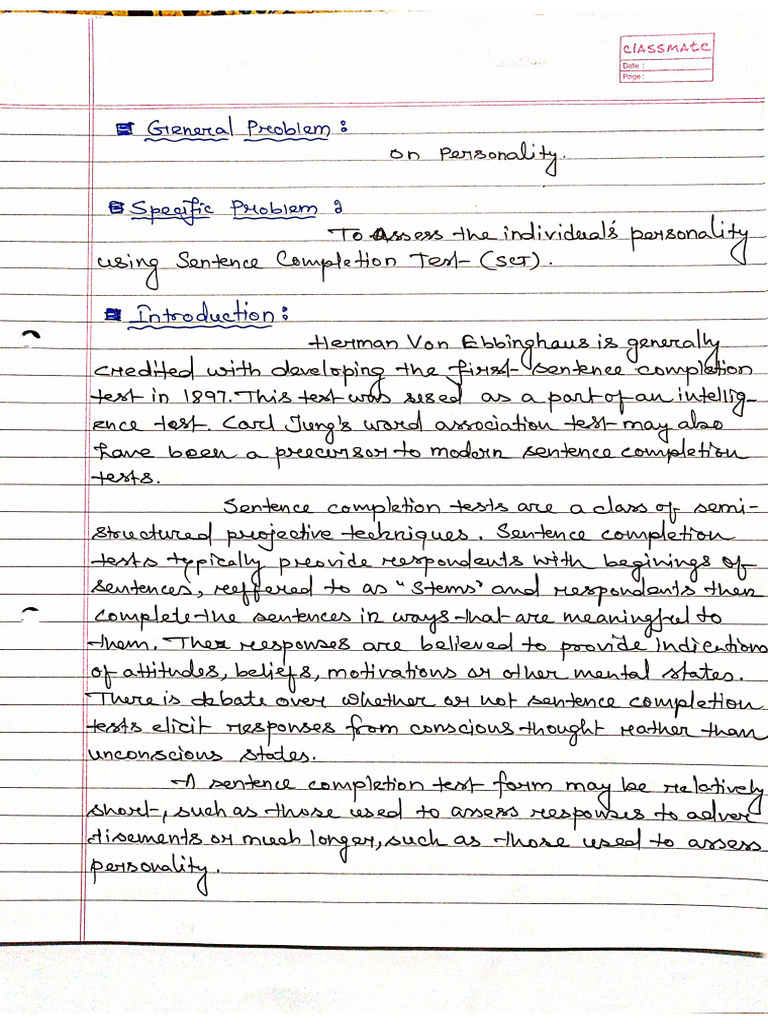 classmate
Date :
Page :
General Problem :
on Personality.
Specific Problem :
To Assess the individual's personality
using Sentence Completion Test (SCT).
Introduction :
Herman Von Ebbinghaus is generally
credited with developing the first sentence completion
test in 1897. This test was used as a part of an intellig-
ence test. Carl Jung's word association test may also
have been a precursor to modern sentence completion
tests.
Sentence completion tests are a class of semi-
structured projective techniques. Sentence completion
tests typically provide respondents with beginings of
sentences, reffered to as "stems" and respondents then
complete the sentences in ways that are meaningful to
them. The responses are believed to provide indications
of attitudes, beliefs, motivations or other mental states.
There is debate over whether or not sentence completion
tests elicit responses from conscious thought rather than
unconscious states.
A sentence completion test form may be relatively
short, such as those used to assess responses to adver
tisements or much longer, such as those used to assess
personality.